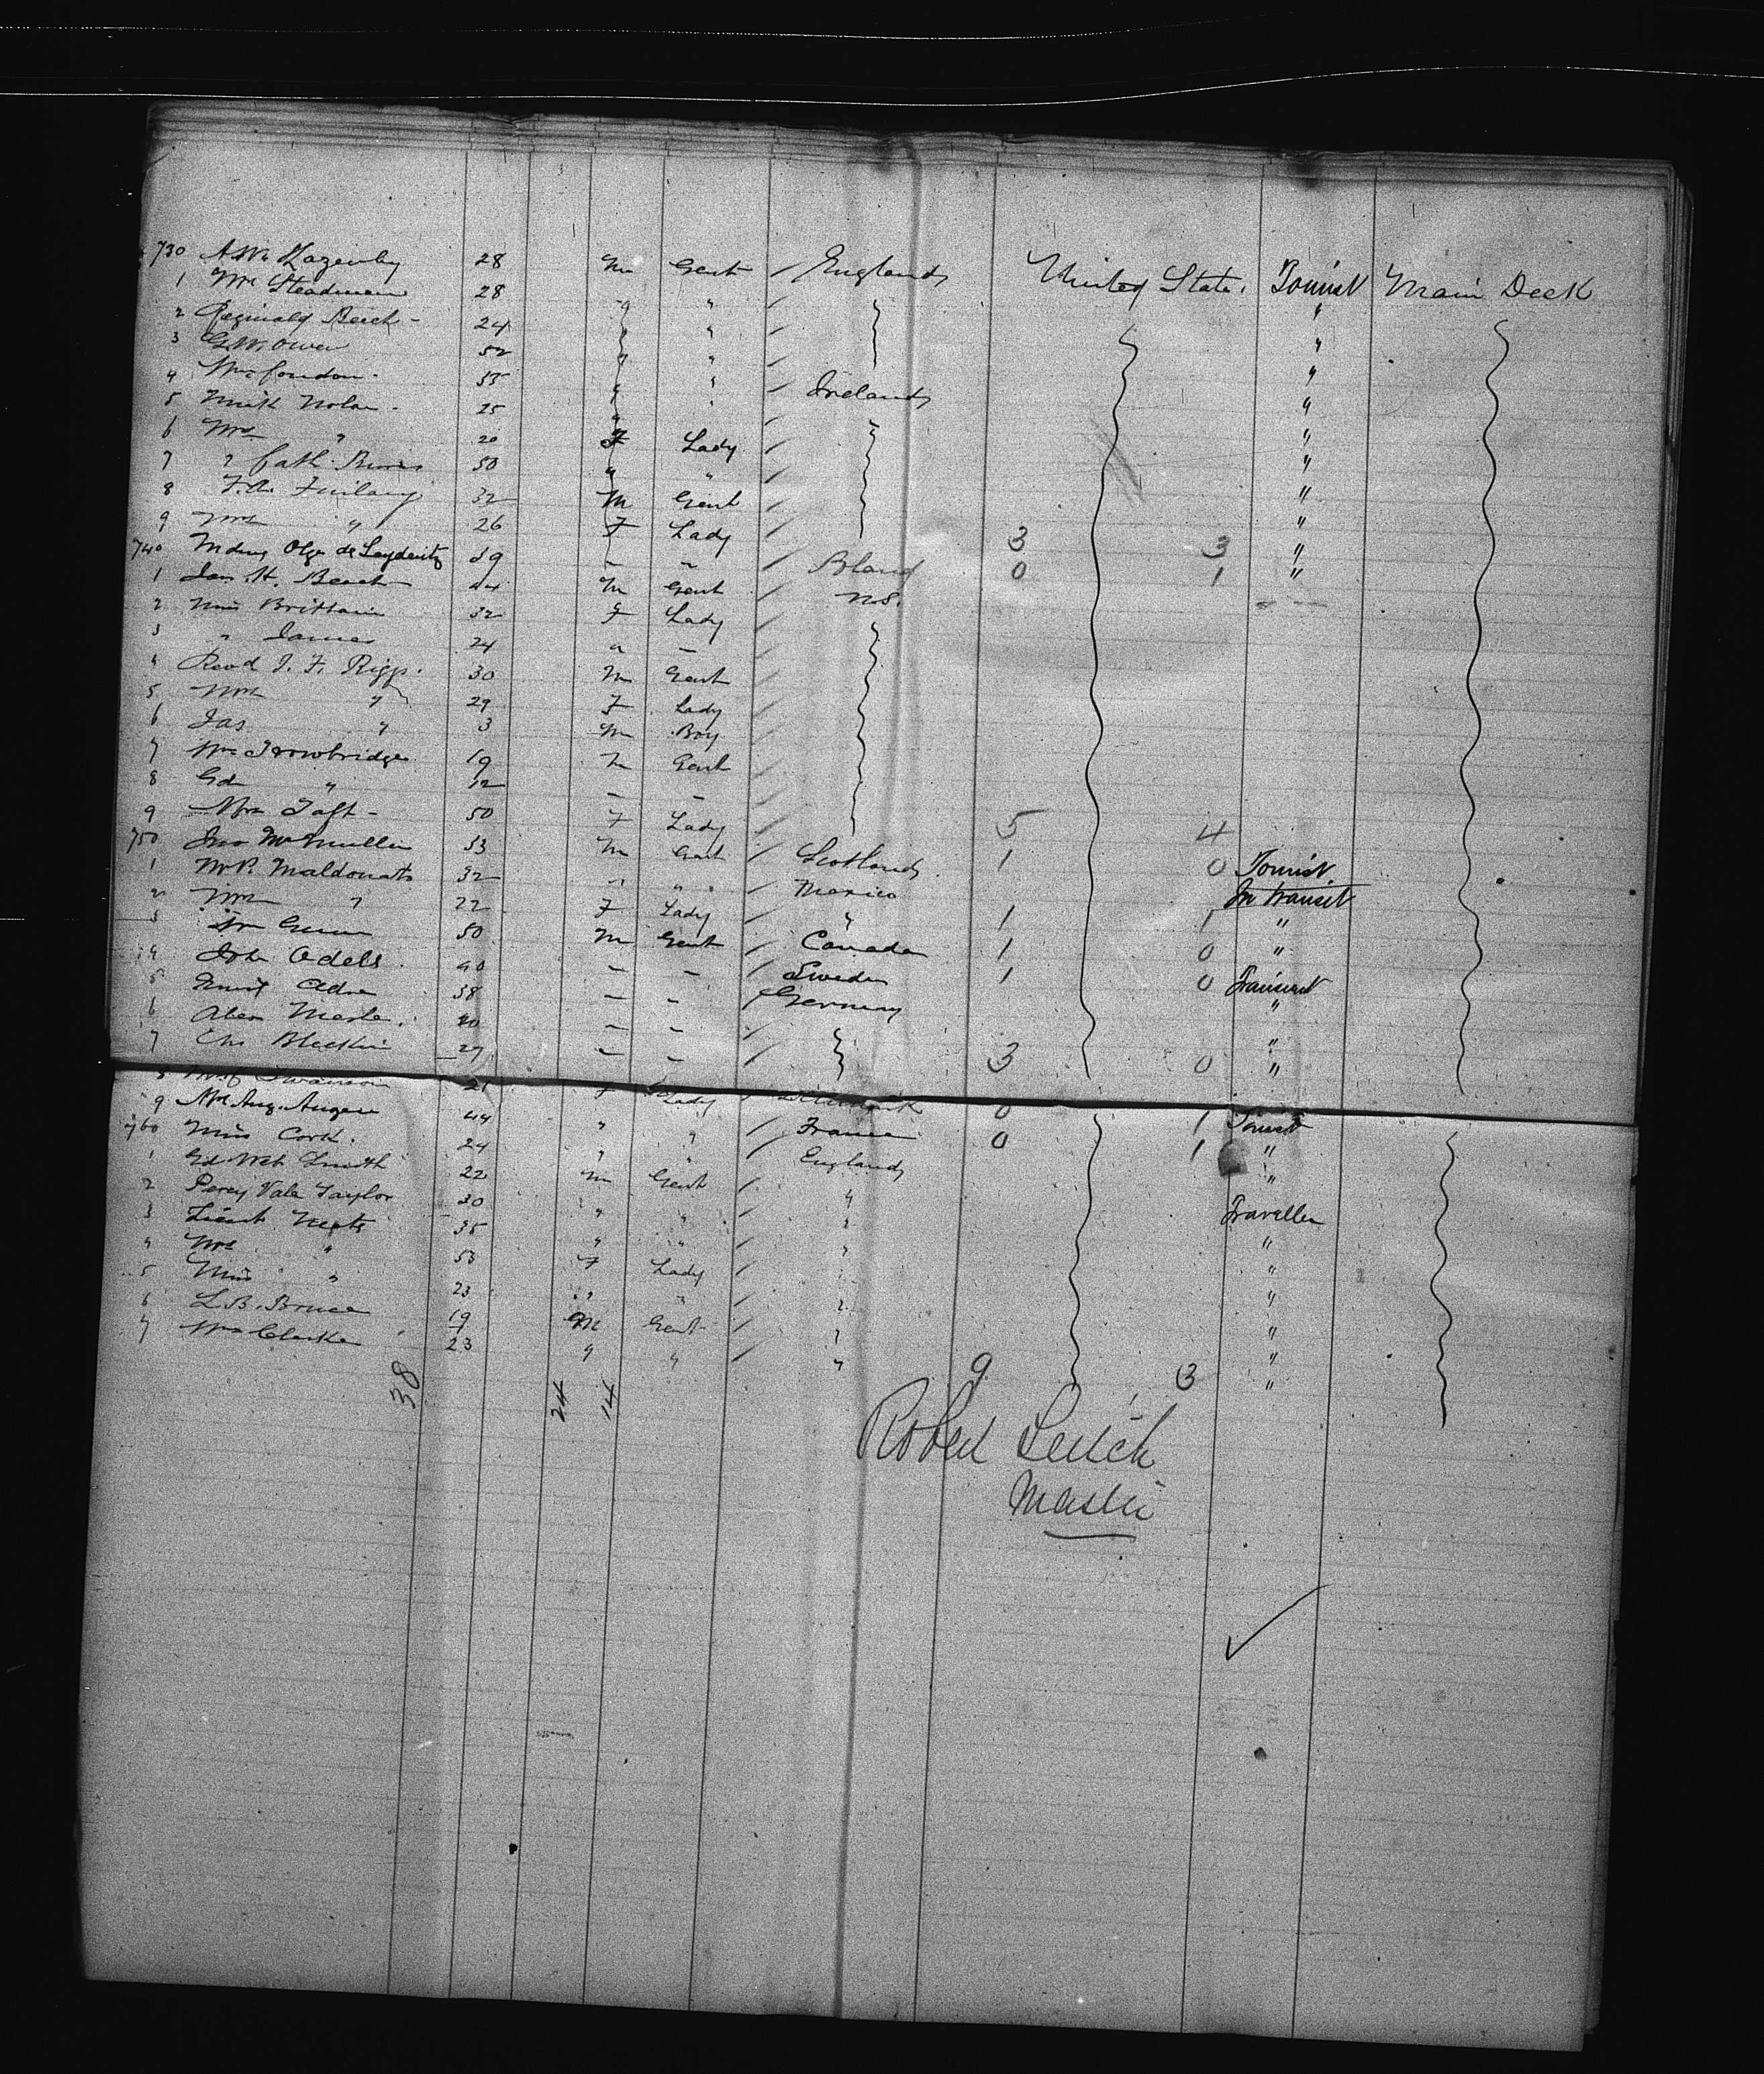 730 A.W. Lazenby 28 M Gent / England United State. Tourist Main Deck
1 Wm Steadman 28 " " / "
2 Reginald Beech - 24 " " / "
3 G.W. Owen 52 " " / "
4 Wm Condon - 35 " " / Ireland "
5 Mick Nolan - 25 " " / "
6 Mrs " 20 F Lady / "
7 " Cath. Burns 50 " " / "
8 F.A. Furlong 32 M Gent / "
9 Mrs " 26 F Lady / 3 3 "
740 Mdme Olga de Leyderitz 39 - - / Poland 0 1 "
1 Jas. H. Beach 44 M Gent / U.S.
2 Miss Brittain 32 F Lady /
3 " James 24 " - /
4 Revd J. F. Riggs. 30 M Gent /
5 Mrs " 29 F Lady /
6 Jas " 3 M Boy /
7 Wm Trowbridge 19 M Gent /
8 Ed " 12 - - /
9 Mrs Taft - 50 F Lady / 5 4
750 Jno McMullen 53 M Gent / Scotland 1 0 Tourist.
1 M.P. Maldonato 32 " " / Mexico In transit
2 Mrs " 22 F Lady / " 1 1 "
3 Wm Gunn 50 M Gent / Canada 1 0 "
4 John Odels 40 - - / Sweden 1 0 Transient
5 Ernst Adra 38 - - / Germany "
6 Alex 20 - - / "
7 Chs 27 - - / 3 0 "
8 Swanson 21 F Lady / 0 1 Tourist
9 Mrs Aug. Augen 44 " " / France 0 1 "
760 Miss Cork. 24 " " / England "
1 Ed Web Smith 22 M Gent / "
2 Percy Vale Taylor 30 " " / " Traveller
3 Lieut 35 " " / " "
4 Mrs " 53 F Lady / "
5 Miss " 23 " " / " "
6 L.B. Bruce 19 M Gent / " "
7 Wm Clarke 23 " " / " 9 3 "
38 24 14
Robert Leitch
Master